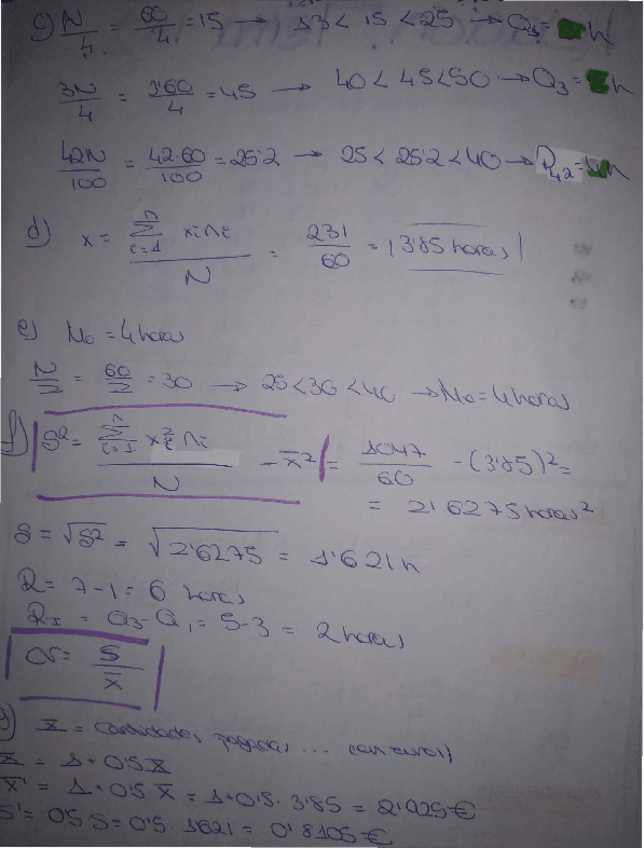 c) N/4 = 60/4 = 15 → 13 < 15 < 25 → Q1 = h
3N/4 = 3·60/4 = 45 → 40 < 45 < 50 → Q3 = h
42N/100 = 42·60/100 = 25'2 → 25 < 25'2 < 40 → P42 = 4h
d) x = Σ(i=1, n) xi ni / N = 231/60 = 3'85 horas
e) Mo = 4 horas
N/2 = 60/2 = 30 → 25 < 30 < 40 → Me = 4 horas
f) S² = Σ(i=1, n) xi² ni / N - x̄² = 1047/60 - (3'85)² =
= 2'6275 horas²
S = √S² = √2'6275 = 1'621 h
R = 7-1 = 6 horas
RI = Q3-Q1 = 5-3 = 2 horas
CV = S/x̄
g) X = cantidades pagadas ... (en euros)
= 1+0'5X
X̄' = 1+0'5 X̄ = 1+0'5·3'85 = 2'925€
S' = 0'5 S = 0'5·1'621 = 0'8105€